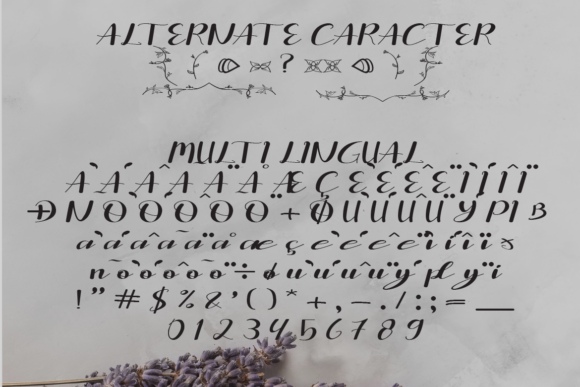 ALTERNATE CARACTER
?
MULTI LINGUAL
À Á Â Ã Ä Å Æ Ç È É Ê Ë Ì Í Î Ï
Ð Ñ Ò Ó Ô Õ Ö × Ø Ù Ú Û Ü Ý Þ ß
à á â ã ä å æ ç è é ê ë ì í î ï ð
ñ ò ó ô õ ö ÷ ø ù ú û ü ý þ ÿ
! " # $ % & ' ( ) * + , - . / : ; = _
0 1 2 3 4 5 6 7 8 9